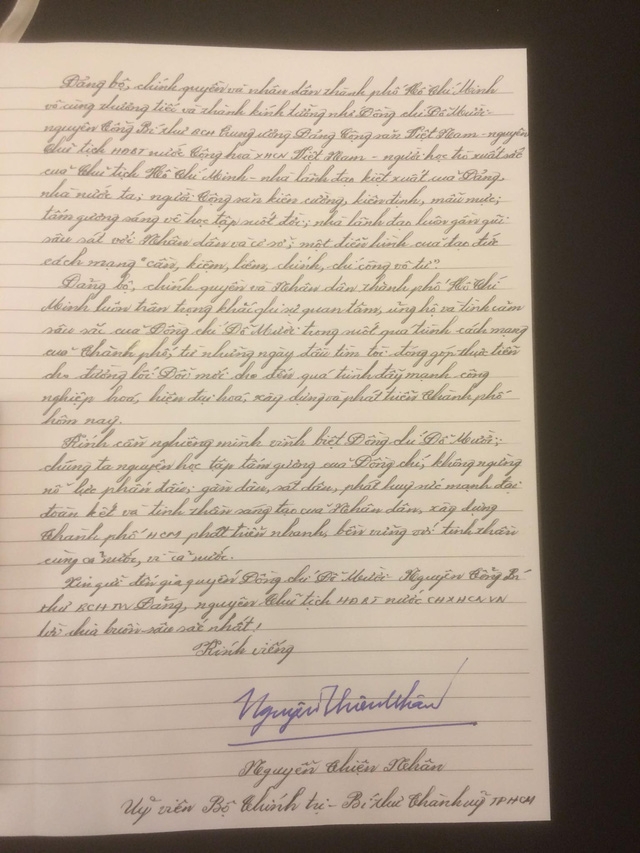 Đảng bộ, chính quyền và nhân dân thành phố Hồ Chí Minh
vô cùng thương tiếc và thành kính tưởng nhớ Đồng chí Đỗ Mười -
nguyên Tổng Bí thư BCH Trung ương Đảng Cộng sản Việt Nam - nguyên
Chủ tịch HĐBT nước Cộng hoà XHCN Việt Nam - người học trò xuất sắc
của Chủ tịch Hồ Chí Minh - nhà lãnh đạo kiệt xuất của Đảng,
nhà nước ta; người Cộng sản kiên cường, kiên định, mẫu mực;
tấm gương sáng về học tập suốt đời; nhà lãnh đạo luôn gần gũi
sâu sát với Nhân dân và cơ sở; một điển hình của đạo đức
cách mạng "cần, kiệm, liêm, chính, chí công vô tư".
Đảng bộ, chính quyền và Nhân dân thành phố Hồ Chí
Minh luôn trân trọng khắc ghi sự quan tâm, ủng hộ và tình cảm
sâu sắc của Đồng chí Đỗ Mười trong suốt quá trình cách mạng
của Thành phố, từ những ngày đầu tìm tòi đóng góp thực tiễn
cho đường lối Đổi mới cho đến quá trình đẩy mạnh công
nghiệp hoá, hiện đại hoá, xây dựng và phát triển Thành phố
hôm nay.
Kính cẩn nghiêng mình vĩnh biệt Đồng chí Đỗ Mười;
chúng ta nguyện học tập tấm gương của Đồng chí, không ngừng
nỗ lực phấn đấu; gần dân, sát dân, phát huy sức mạnh đại
đoàn kết và tinh thần sáng tạo của Nhân dân, xây dựng
Thành phố HCM phát triển nhanh, bền vững với tinh thần
cùng cả nước, vì cả nước.
Xin gửi đến gia quyến Đồng chí Đỗ Mười Nguyên Tổng Bí
thư BCH TW Đảng, nguyên Chủ tịch HĐBT nước CHXHCNVN
lời chia buồn sâu sắc nhất!
Kính viếng
Nguyễn Thiện Nhân
Nguyễn Thiện Nhân
Uỷ viên Bộ Chính trị - Bí thư Thành uỷ TPHCM